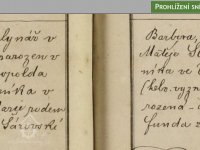 Prohlížení sni
lynář v
narozen v
opolda
níka v
arie roden
Sárovské
Barbora,
Matěje
níka ve
(helv. vyzn
rozená
funda v